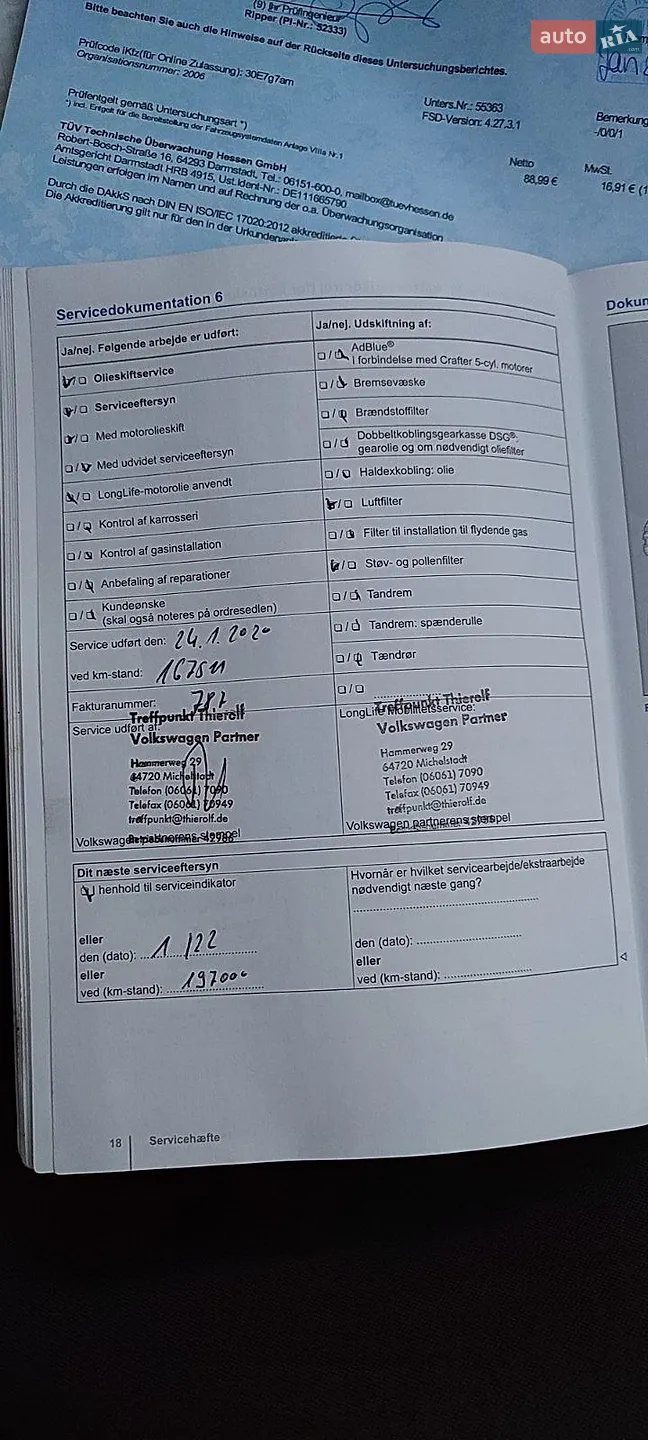 auto RIA .com
(9) Ihr Prüfingenieur
Ripper (PI-Nr.: 52333)
Bitte beachten Sie auch die Hinweise auf der Rückseite dieses Untersuchungsberichtes.
Prüfcode iKfz(für Online Zulassung): 30E7g7am
Organisationsnummer: 2006
Unters.Nr.: 55363
FSD-Version: 4.27.3.1
Bemerkung
-/0/0/1
Prüfentgelt gemäß Untersuchungsart *)
*) incl. Entgelt für die Bereitstellung der Fahrzeugsystemdaten Anlage VIIIa Nr.1
Netto
88,99 €
MwSt.
16,91 € (1
TÜV Technische Überwachung Hessen GmbH
Robert-Bosch-Straße 16, 64293 Darmstadt, Tel.: 06151-600-0, mailbox@tuevhessen.de
Amtsgericht Darmstadt HRB 4915, Ust.Ident-Nr.: DE111665790
Leistungen erfolgen im Namen und auf Rechnung der o.a. Überwachungsorganisation
Durch die DAkkS nach DIN EN ISO/IEC 17020:2012
Die Akkreditierung gilt nur für den in der
Servicedokumentation 6
Ja/nej. Følgende arbejde er udført:
☐ Olieskiftservice
☐ Serviceeftersyn
☐ Med motorolieskift
☐ Med udvidet serviceeftersyn
☐ LongLife-motorolie anvendt
☐ Kontrol af karrosseri
☐ Kontrol af gasinstallation
☐ Anbefaling af reparationer
☐ Kundeønske
(skal også noteres på ordresedlen)
Service udført den: 24.1.2020
ved km-stand: 167511
Fakturanummer:
Service udført af:
Treffpunkt Thierolf
Volkswagen Partner
Hammerweg 29
64720 Michelstadt
Telefon (06061) 7090
Telefax (06061) 70949
treffpunkt@thierolf.de
Volkswagen partnerens stempel
Ja/nej. Udskiftning af:
☐ AdBlue®
i forbindelse med Crafter 5-cyl. motorer
☐ Bremsevæske
☐ Brændstoffilter
☐ Dobbeltkoblingsgearkasse DSG®:
gearolie og om nødvendigt oliefilter
☐ Haldexkobling: olie
☐ Luftfilter
☐ Filter til installation til flydende gas
☐ Støv- og pollenfilter
☐ Tandrem
☐ Tandrem: spænderulle
☐ Tændrør
☐/☐
LongLife Mobilitetsservice:
Treffpunkt Thierolf
Volkswagen Partner
Hammerweg 29
64720 Michelstadt
Telefon (06061) 7090
Telefax (06061) 70949
treffpunkt@thierolf.de
Volkswagen partnerens stempel
Dit næste serviceeftersyn
I henhold til serviceindikator
eller
den (dato): 1/22
eller
ved (km-stand): 197000
Hvornår er hvilket servicearbejde/ekstraarbejde
nødvendigt næste gang?
den (dato):
eller
ved (km-stand):
18 Servicehæfte